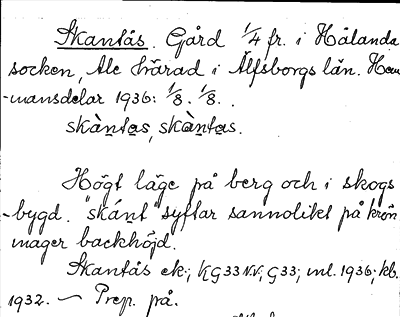 Skantås. Gård 1/4 fr. i Hålanda
socken, Ale härad i Älfsborgs län. Hem
-mansdelar 1936: 1/8. 1/8.
skàntas, skàntas.
Högt läge på berg och i skogs
-bygd. "skánt" syftar sannolikt på krön
mager backhöjd.
Skantås ek; KG33 N.V; G33; ml. 1936; kb.
1932. — Prep. på.